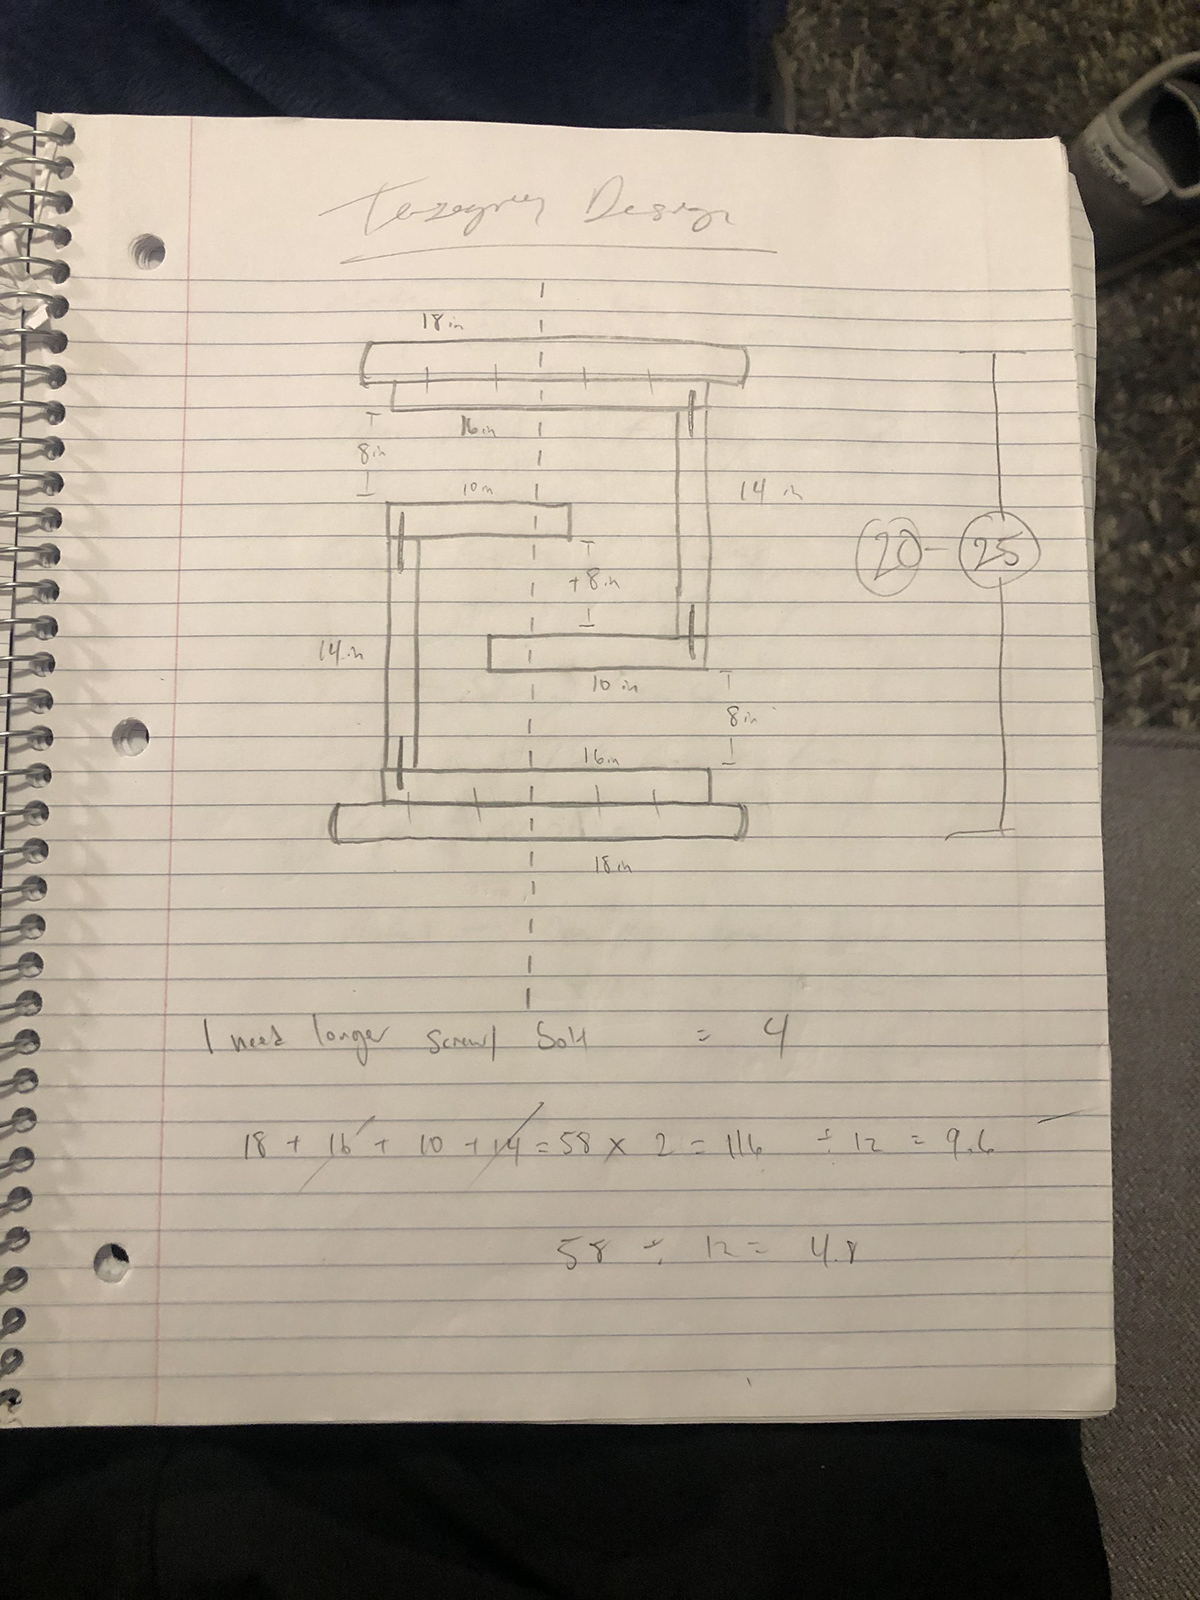 Tezegrey Design
18 in
16 in
8 in
10 in
14 in
20 - 25
+8 in
14 in
10 in
8 in
16 in
18 in
I need longer screw/ bolt = 4
18 + 16 + 10 + 14 = 58 x 2 = 116 ÷ 12 = 9.6
58 ÷ 12 = 4.8